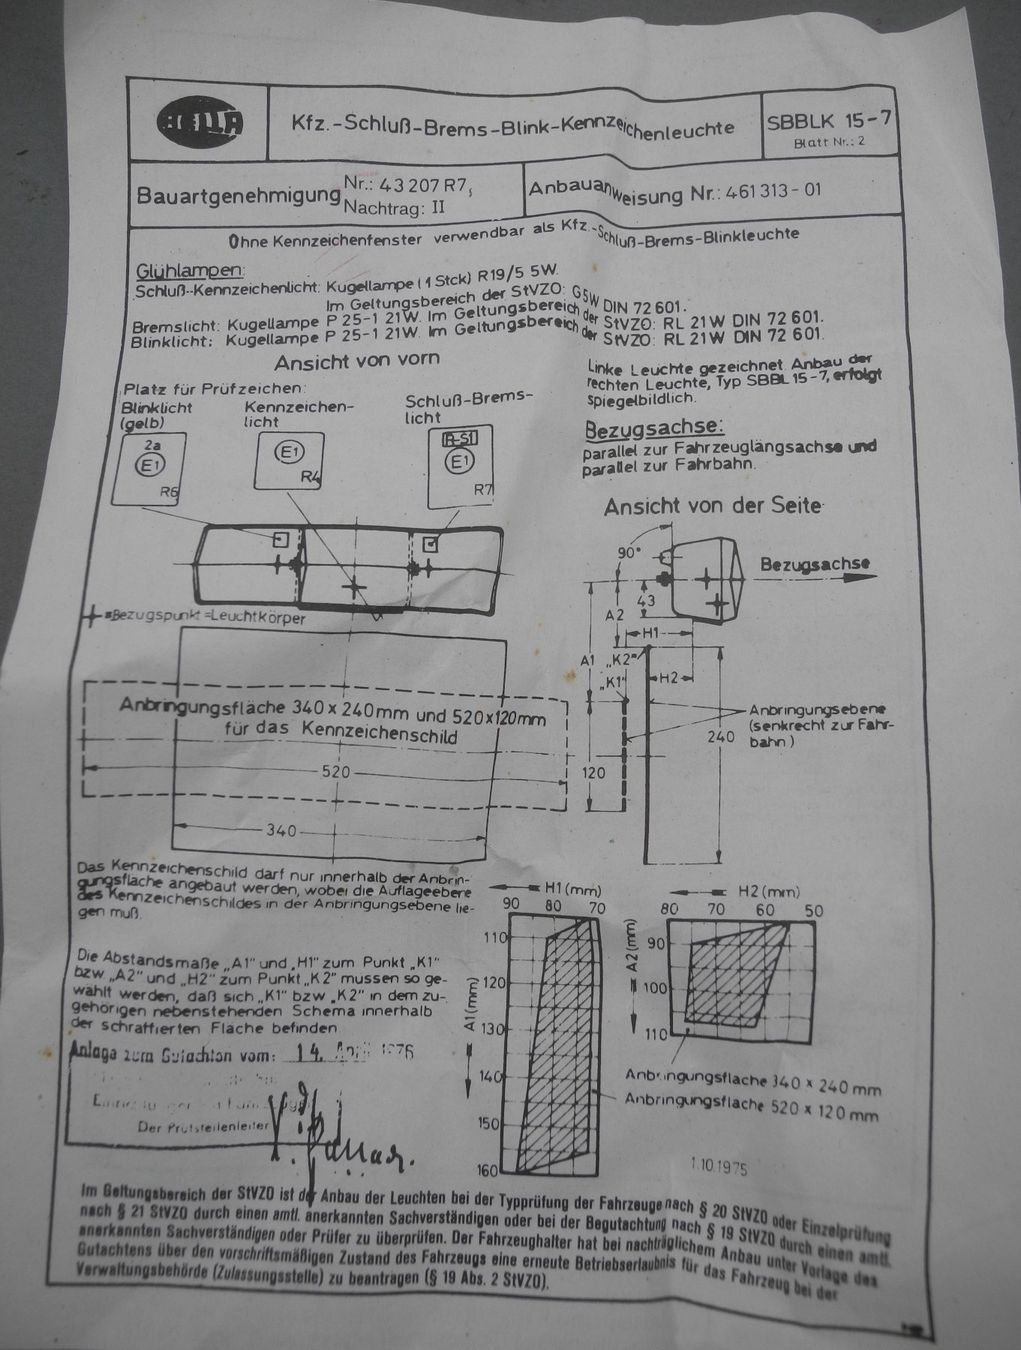 HELLA
Kfz.-Schluß-Brems-Blink-Kennzeichenleuchte
SBBLK 15-7
Blatt Nr.: 2
Bauartgenehmigung Nr.: 43 207 R7,
Nachtrag: II
Anbauanweisung Nr.: 461 313-01
Ohne Kennzeichenfenster verwendbar als Kfz.-Schluß-Brems-Blinkleuchte
Glühlampen:
Schluß-Kennzeichenlicht: Kugellampe (1 Stck) R19/5 5W.
Im Geltungsbereich der StVZO: G5W DIN 72 601.
Bremslicht: Kugellampe P 25-1 21W. Im Geltungsbereich der StVZO: RL 21W DIN 72 601.
Blinklicht: Kugellampe P 25-1 21W. Im Geltungsbereich der StVZO: RL 21W DIN 72 601.
Ansicht von vorn
Linke Leuchte gezeichnet. Anbau der
rechten Leuchte, Typ SBBL 15-7, erfolgt
spiegelbildlich.
Platz für Prüfzeichen:
Blinklicht
(gelb)
Kennzeichen-
licht
Schluß-Brems-
licht
2a
E1
R6
E1
R4
R-S1
E1
R7
Bezugsachse:
parallel zur Fahrzeuglängsachse und
parallel zur Fahrbahn.
Ansicht von der Seite
90°
Bezugsachse
43
A2
H1
A1
„K2"
„K1"
H2
=Bezugspunkt=Leuchtkörper
Anbringungsfläche 340 x 240mm und 520x120mm
für das Kennzeichenschild
520
340
120
240
Anbringungsebene
(senkrecht zur Fahr-
bahn)
Das Kennzeichenschild darf nur innerhalb der Anbrin-
gungsfläche angebaut werden, wobei die Auflageebene
des Kennzeichenschildes in der Anbringungsebene lie-
gen muß.
H1 (mm)
90 80 70
110
120
130
140
150
160
A1 (mm)
H2 (mm)
80 70 60 50
90
100
110
A2 (mm)
Die Abstandsmaße „A1" und „H1" zum Punkt „K1"
bzw „A2" und „H2" zum Punkt „K2" mussen so ge-
wählt werden, daß sich „K1" bzw „K2" in dem zu-
gehörigen nebenstehenden Schema innerhalb
der schraffierten Fläche befinden
Anlage zum Gutachten vom: 14. April 1976
Der Prüfstellenleiter
Anbringungsfläche 340 x 240 mm
Anbringungsfläche 520 x 120 mm
1.10.1975
Im Geltungsbereich der StVZO ist der Anbau der Leuchten bei der Typprüfung der Fahrzeuge nach § 20 StVZO oder Einzelprüfung
nach § 21 StVZO durch einen amtl. anerkannten Sachverständigen oder bei der Begutachtung nach § 19 StVZO durch einen amtl.
anerkannten Sachverständigen oder Prüfer zu überprüfen. Der Fahrzeughalter hat bei nachträglichem Anbau unter Vorlage des
Gutachtens über den vorschriftsmäßigen Zustand des Fahrzeugs eine erneute Betriebserlaubnis für das Fahrzeug bei der
Verwaltungsbehörde (Zulassungsstelle) zu beantragen (§ 19 Abs. 2 StVZO).